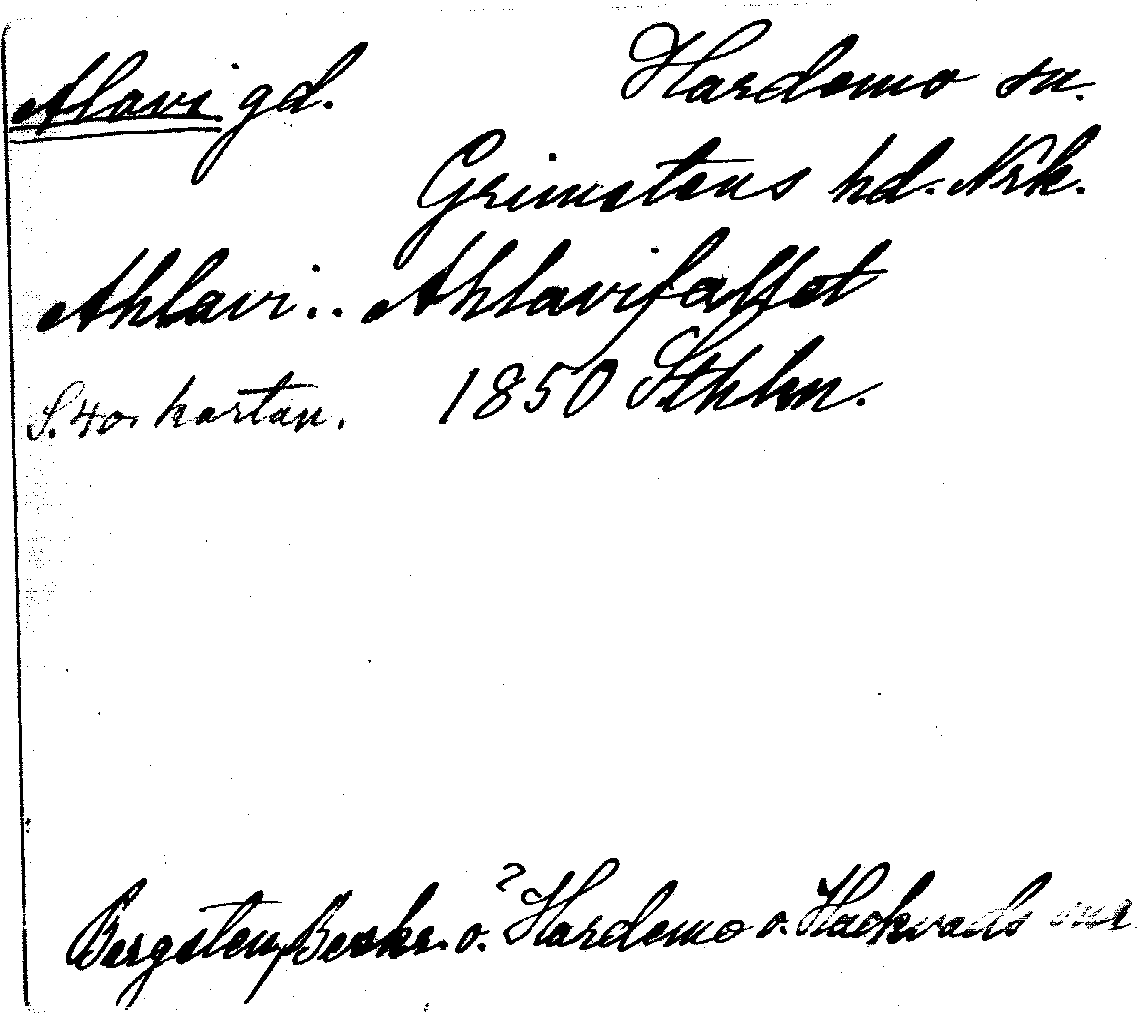 Alavi gd. Hardemo sn.
Grimstens hd. Nrk.
Ahlavi.. Ahlavifallet
S. 40. kartan. 1850 Sthlm.
Bergsten, Beskr. o. Hardemo o. Hackvads snr